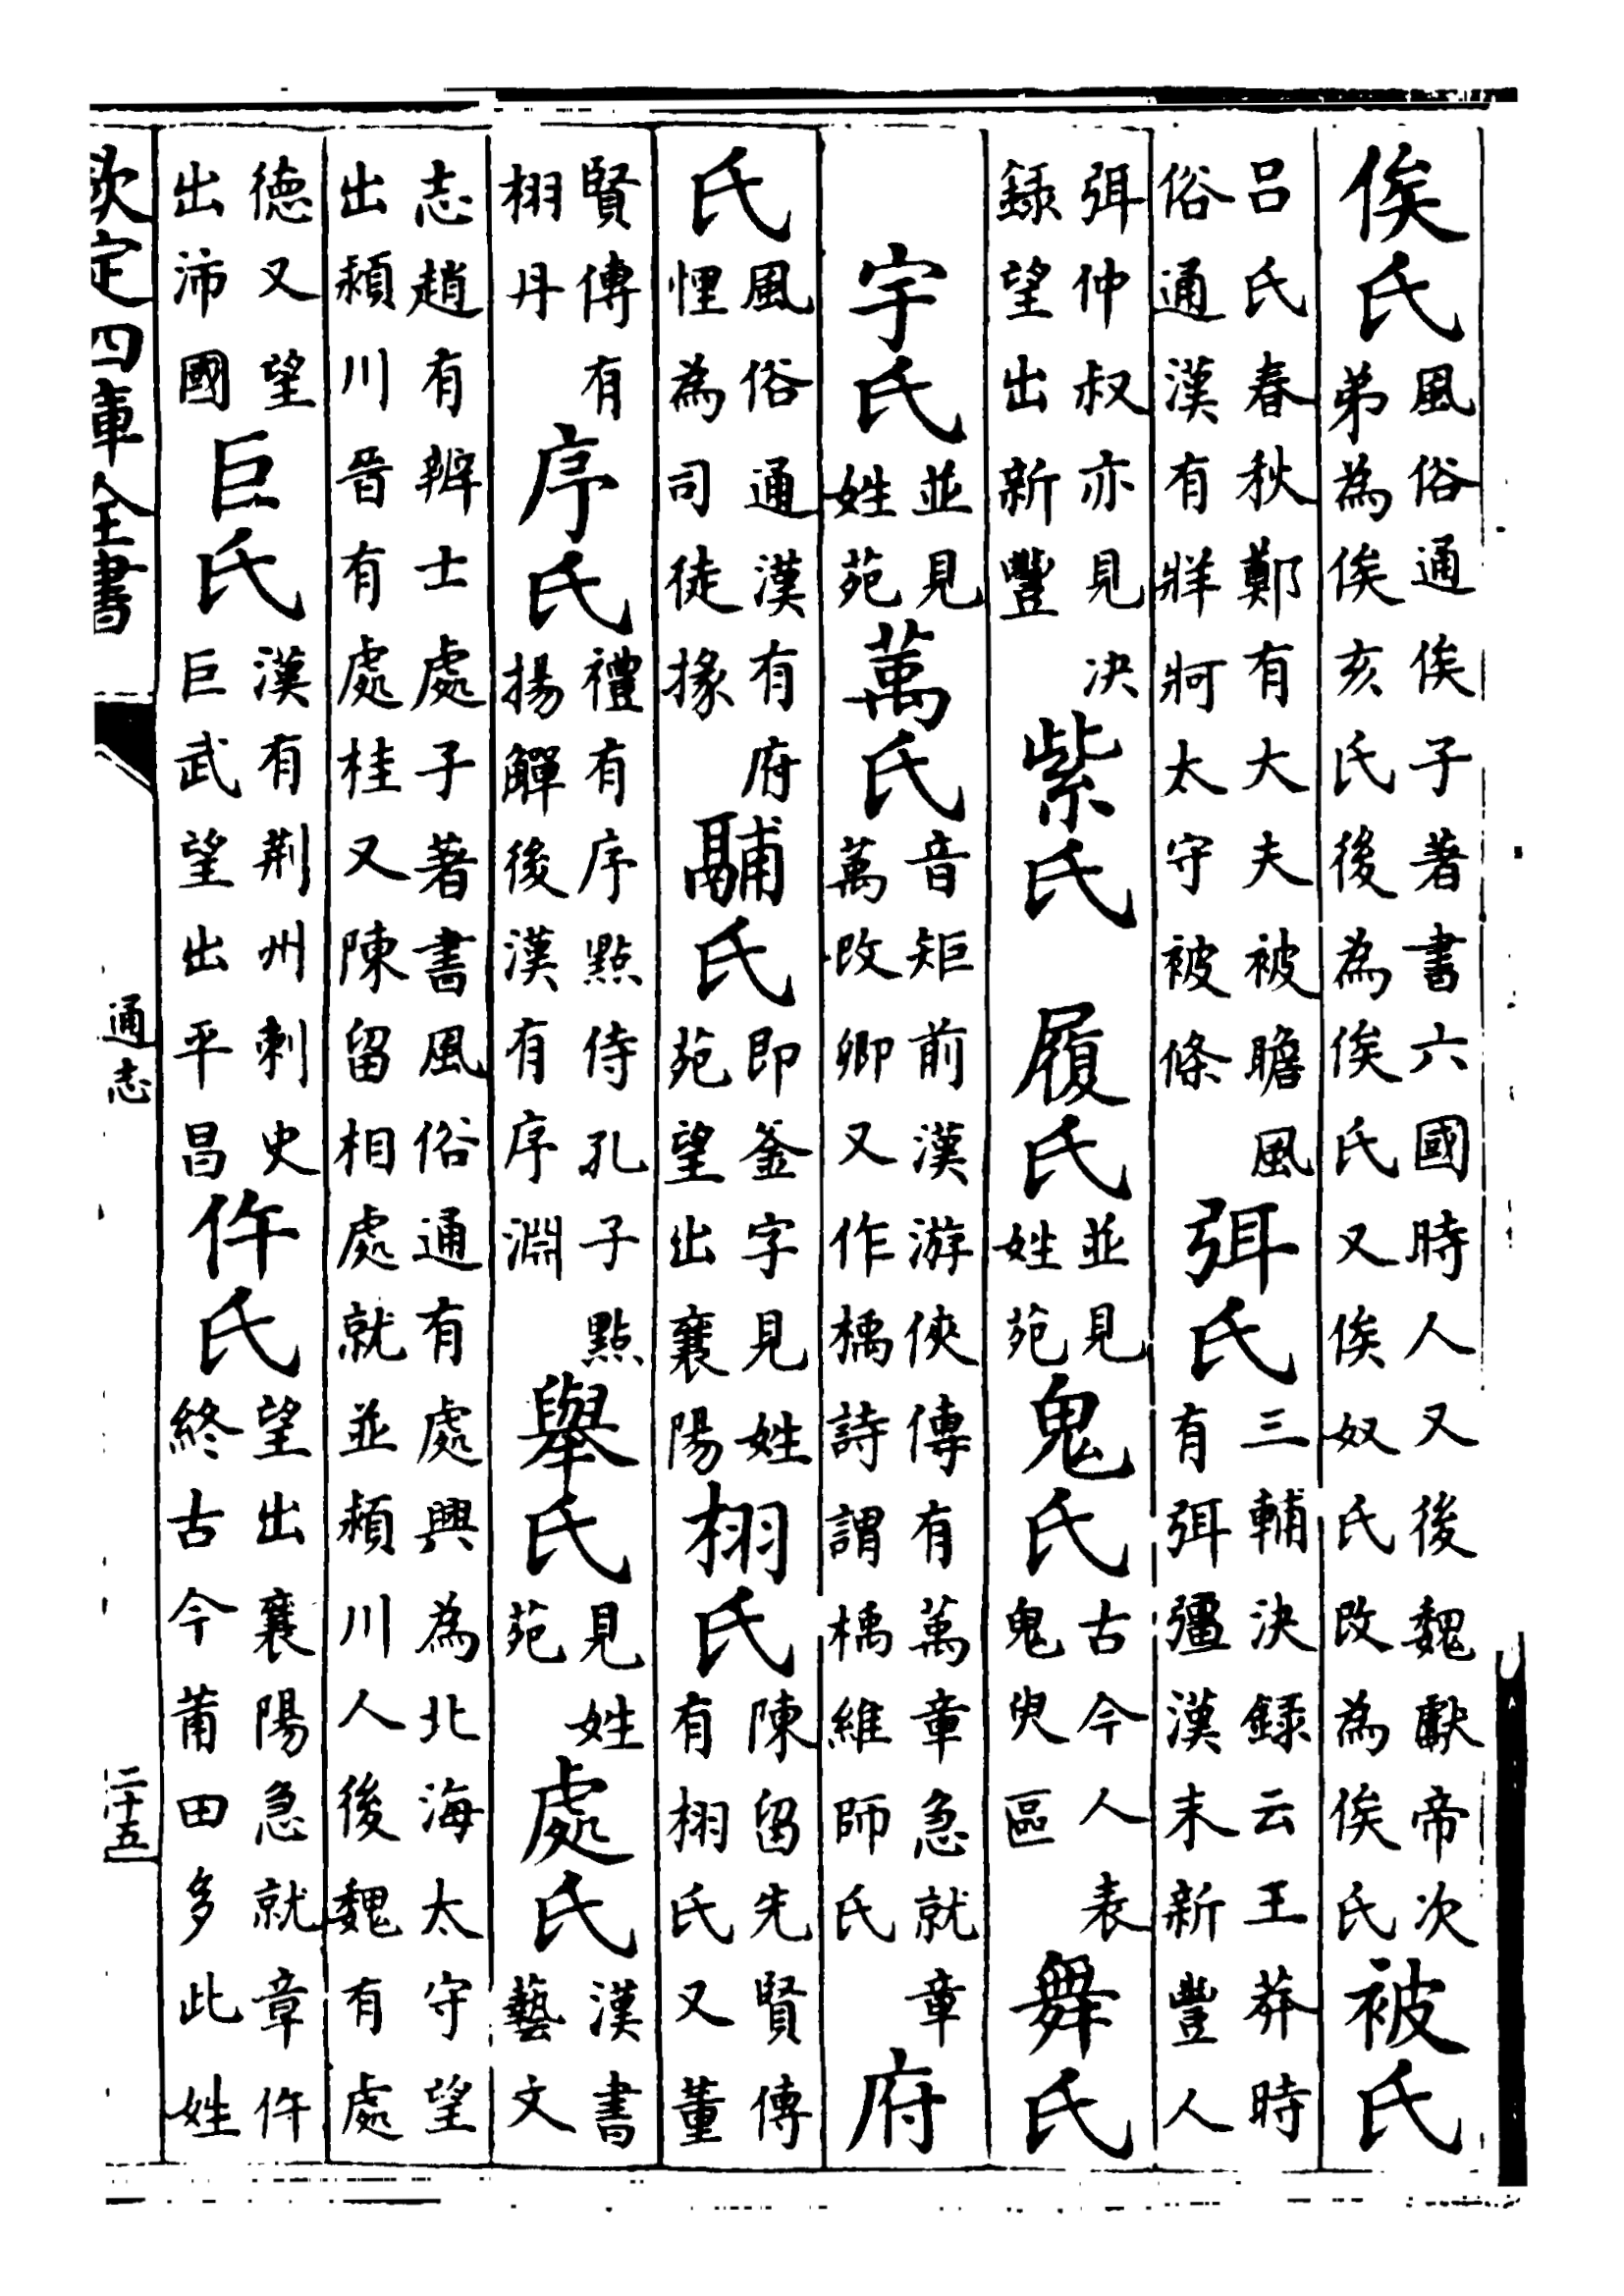 俟氏風俗通俟子著書六國時人又後魏獻帝次
弟為俟亥氏後為俟氏又俟奴氏改為俟氏被氏
呂氏春秋鄭有大夫被瞻風
俗通漢有牂牁太守被條弭氏三輔決錄云王莽時
有弭彊漢末新豐人
弭仲叔亦見決
錄望出新豐紫氏 履氏並見
姓苑鬼氏古今人表
鬼臾區舞氏
宇氏並見
姓苑萬氏音矩前漢游俠傳有萬章急就章
萬改卿又作楀詩謂楀維師氏府
氏風俗通漢有府
悝為司徒掾鬴氏即釜字見姓
苑望出襄陽栩氏陳留先賢傳
有栩氏又董
賢傳有
栩丹序氏禮有序點侍孔子點
揚觶後漢有序淵舉氏見姓
苑處氏漢書
藝文
志趙有辨士處子著書風俗通有處興為北海太守望
出頴川晉有處桂又陳留相處就並頴川人後魏有處
德又望
出沛國巨氏漢有荆州刺史
巨武望出平昌仵氏望出襄陽急就章仵
終古今莆田多此姓
欽定四庫全書
通志
二十五